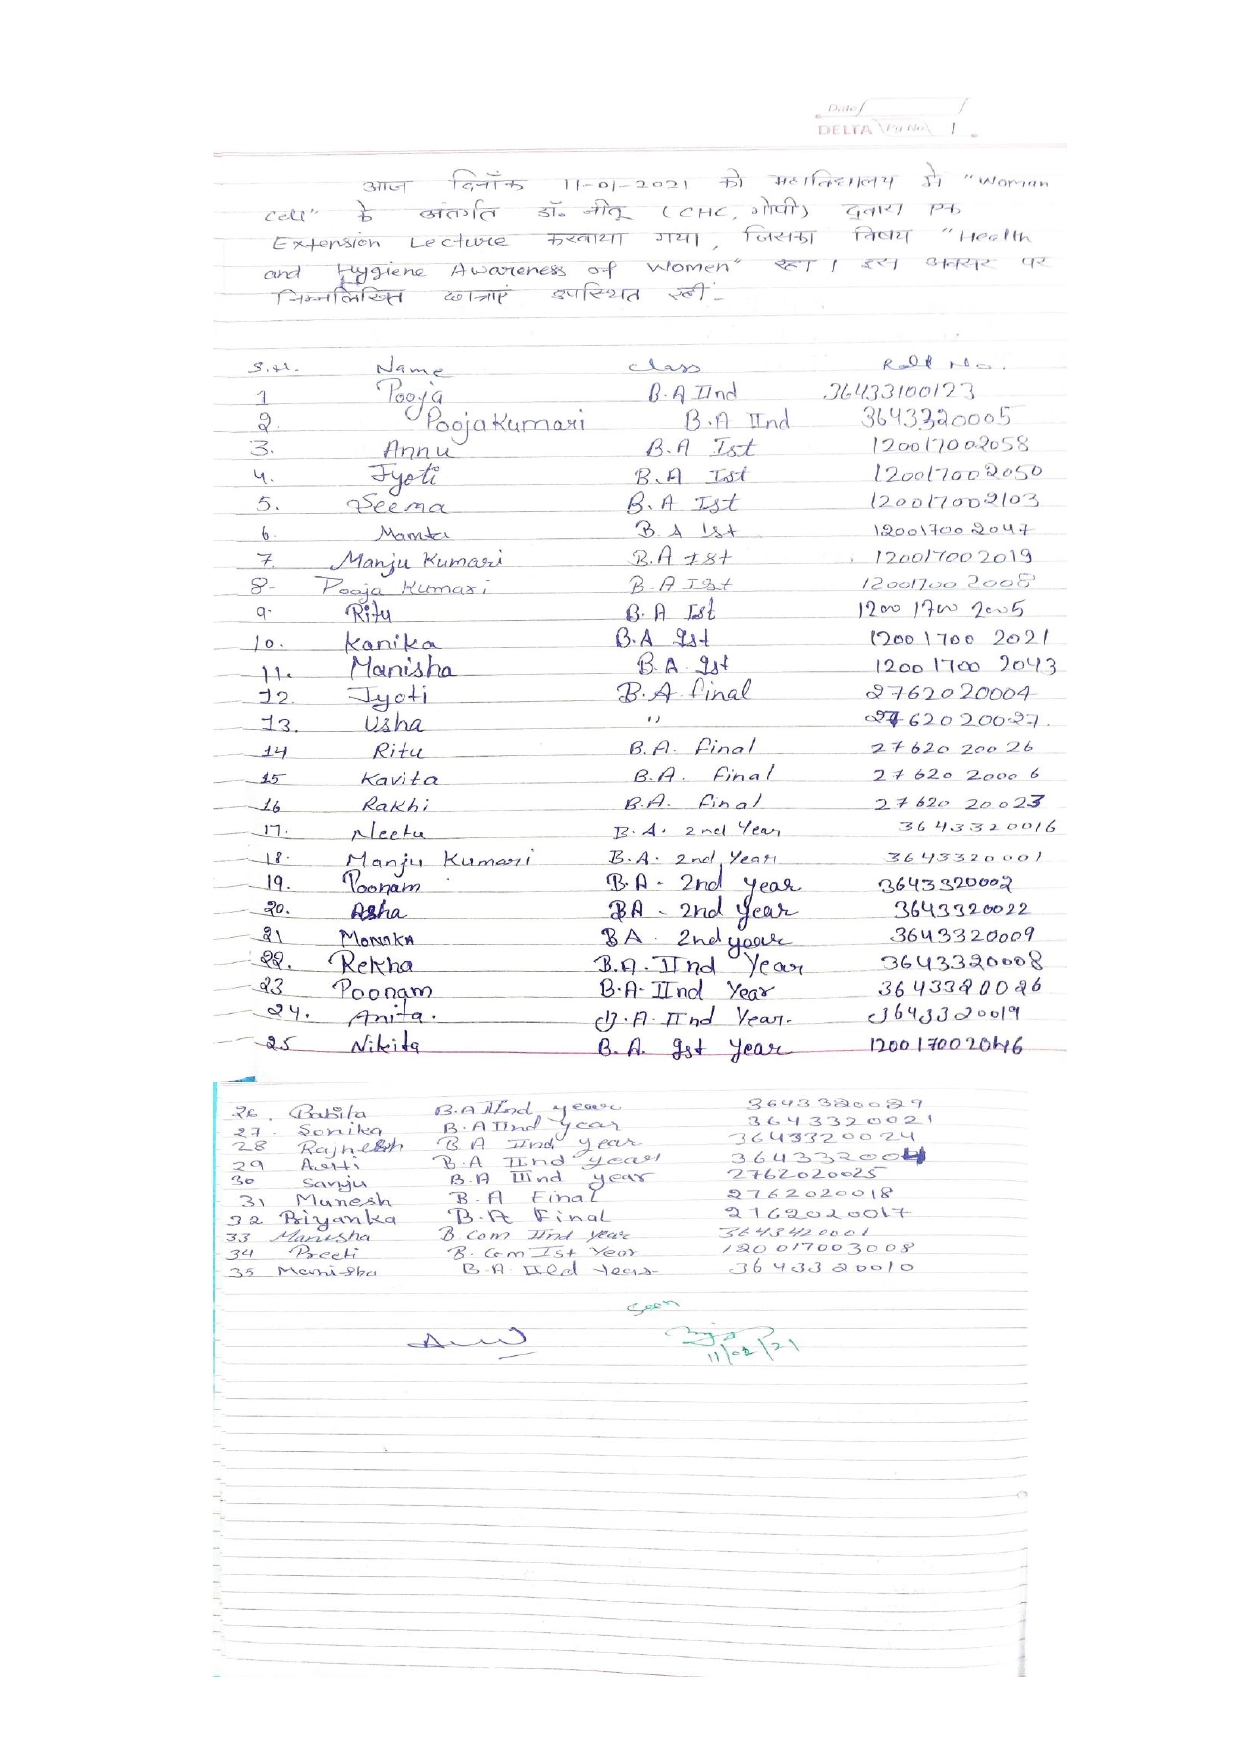 Date
DELTA Pg No. 1
आज दिनाँक 11-01-2021 को महाविद्यालय में "Woman
Cell" के अंतर्गत डॉ. नीतू (CHC, गोपी) द्वारा एक
Extension Lecture करवाया गया, जिसका विषय "Health
and Hygiene Awareness of Women" रहा। इस अवसर पर
निम्नलिखित छात्राएं उपस्थित रही:-
S.N. Name Class Roll No.
1 Pooja B.A IInd 36433100123
2. Pooja Kumari B.A IInd 3643320005
3. Annu B.A Ist 120017002058
4. Jyoti B.A Ist 120017002050
5. Seema B.A Ist 120017002103
6. Mamta B.A Ist 120017002047
7. Manju Kumari B.A Ist 120017002019
8- Pooja Kumari B.A Ist 120017002008
9. Ritu B.A Ist 1200 1700 2005
10. Kanika B.A Ist 1200 1700 2021
11. Manisha B.A. Ist 1200 1700 2043
12. Jyoti B.A. final 2762020004
13. Usha " 2762020027.
14 Ritu B.A. final 27620 200 26
15 Kavita B.A. final 27620 2000 6
16 Rakhi B.A. final 27620 20023
17. Neetu B.A. 2nd Year 3643320016
18. Manju Kumari B.A. 2nd Year 3643320001
19. Poonam B.A - 2nd year 3643320002
20. Asha BA - 2nd year 3643320022
21 Monika BA - 2nd year 3643320009
22. Rekha B.A. IInd Year 3643320008
23 Poonam B.A. IInd Year 3643320026
24. Anita. B.A. IInd Year. 3643320019
25 Nikita B.A. Ist year 120017002046
26. Babita B.A IInd year 3643320029
27. Sonika B.A IInd year 3643320021
28 Rajnesh BA IInd year 3643320024
29 Aarti B.A IInd year
30 Sanju B.A IIInd year 2762020025
31 Munesh B.A Final 2762020018
32 Priyanka B.A Final 2762020017
33 Manisha B.Com IInd year 3643420001
34 Preeti B.Com Ist Year 120017003008
35 Manisha B.A. Year 3643320010
Seen
11/02/21